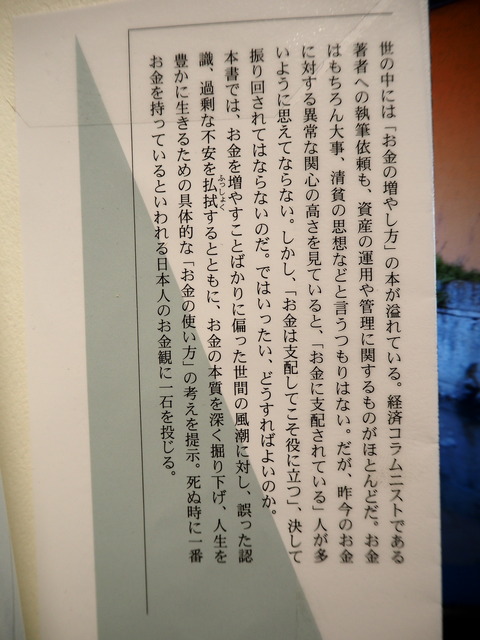 世の中には「お金の増やし方」の本が溢れている。経済コラムニストである
著者への執筆依頼も、資産の運用や管理に関するものがほとんどだ。お金
はもちろん大事、清貧の思想などと言うつもりはない。だが、昨今のお金
に対する異常な関心の高さを見ていると、「お金に支配されている」人が多
いように思えてならない。しかし、「お金は支配してこそ役に立つ」、決して
振り回されてはならないのだ。ではいったい、どうすればよいのか。
本書では、お金を増やすことばかりに偏った世間の風潮に対し、誤った認
識、過剰な不安を払拭するとともに、お金の本質を深く掘り下げ、人生を
ふっしょく
豊かに生きるための具体的な「お金の使い方」の考えを提示。死ぬ時に一番
お金を持っているといわれる日本人のお金観に一石を投じる。